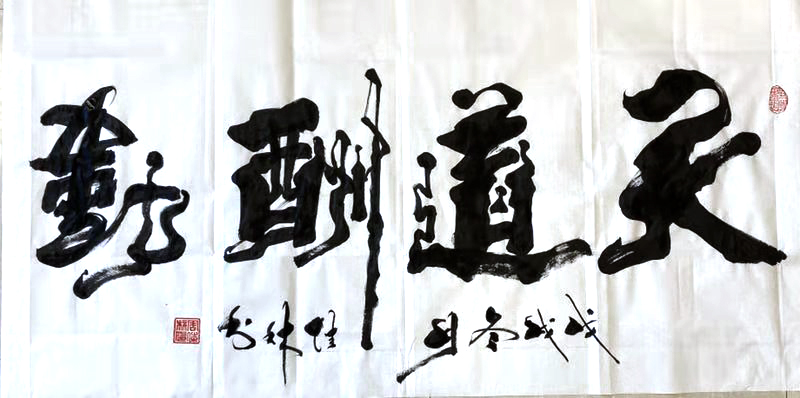 天道酬勤
戊戌冬月 佳林书